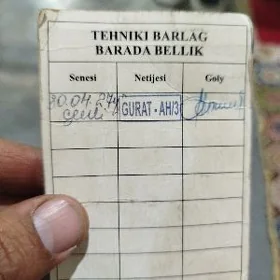 TEHNIKI BARLAG
BARADA BELLIK
Senesi Netijesi Goly
20.04.24ý GURAT-AH/3